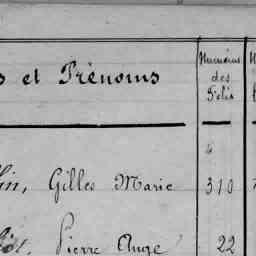 s et Prénoms
Numéros
des
Folis
lin, Gilles Marie 310
Pierre Ange 22